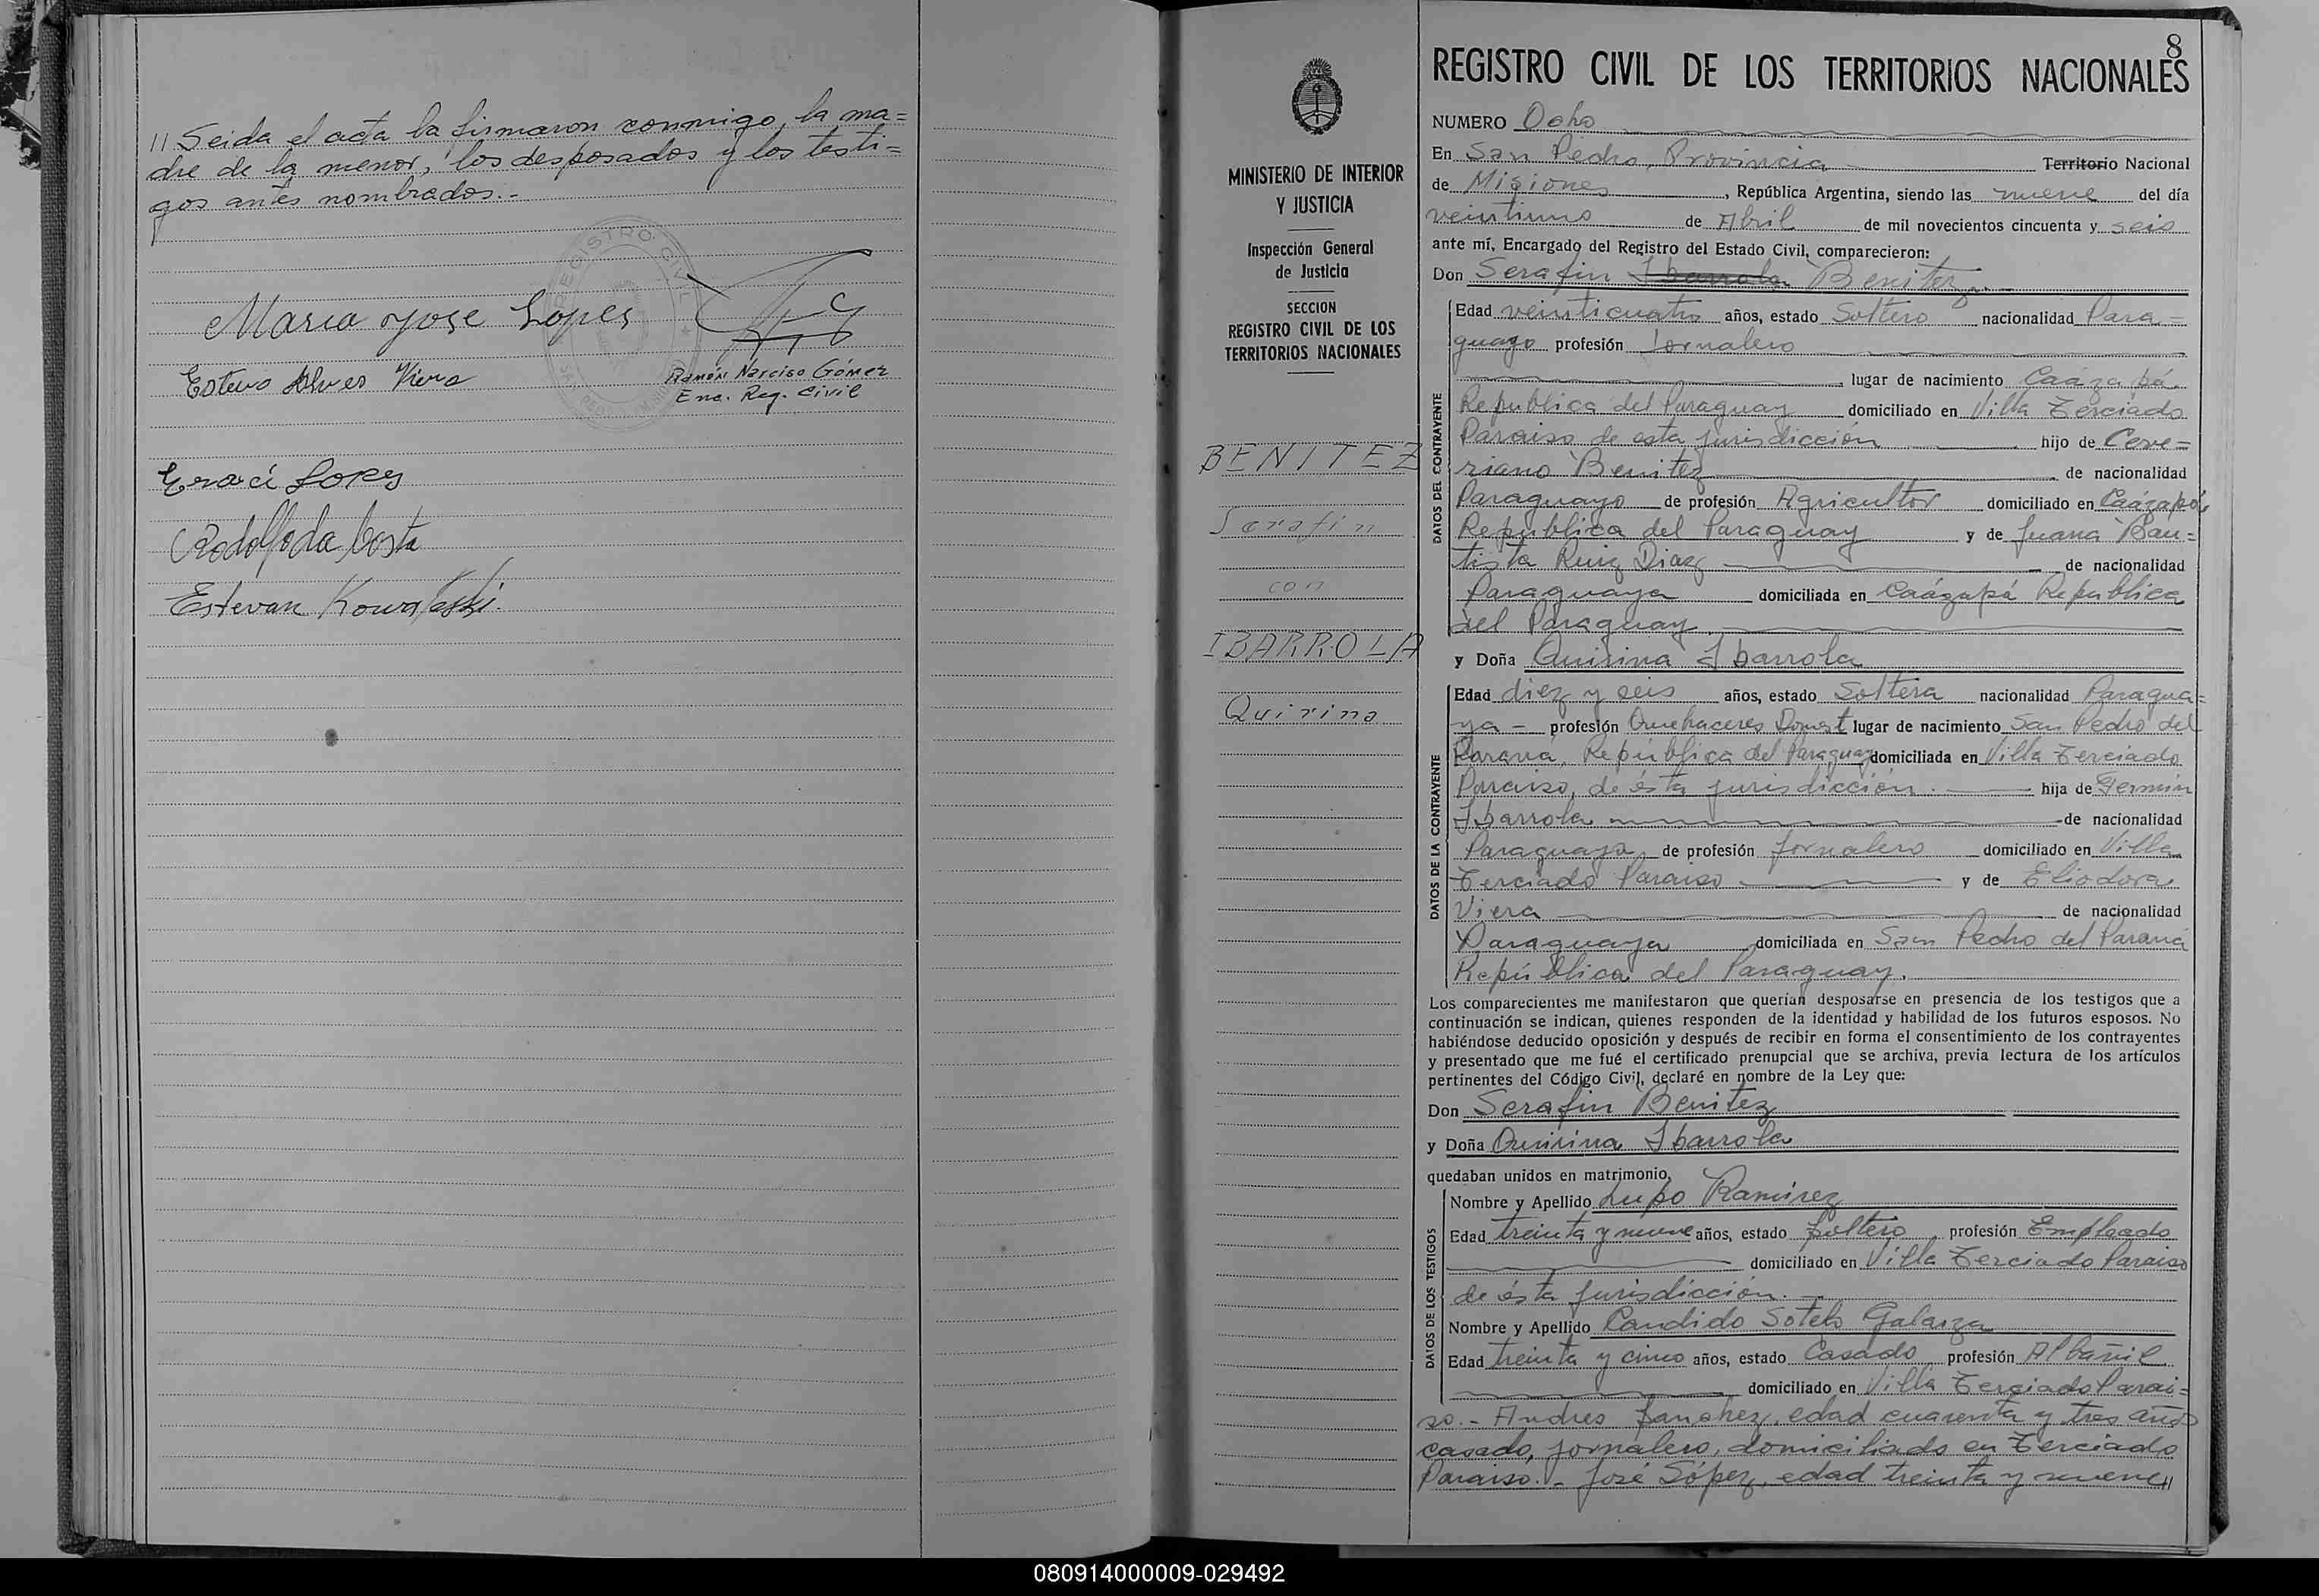 // Leida el acta la firmaron conmigo, la ma=
dre de la menor, los desposados y los testi=
gos antes nombrados.-
REGISTRO CIVIL
Maria Jose Lopes
Estevo Alves Viera
Ramón Narciso Gómez
Enc. Reg. Civil
Eraci Lopes
Rodolfo da Costa
Estevan Kowalski.
MINISTERIO DE INTERIOR
Y JUSTICIA
Inspección General
de Justicia
SECCION
REGISTRO CIVIL DE LOS
TERRITORIOS NACIONALES
BENITEZ
Serafin
con
IBARROLA
Quirina
8
REGISTRO CIVIL DE LOS TERRITORIOS NACIONALES
NUMERO Ocho
En San Pedro, Provincia Territorio Nacional
de Misiones, República Argentina, siendo las nueve del día
veintiuno de Abril de mil novecientos cincuenta y seis
ante mí, Encargado del Registro del Estado Civil, comparecieron:
Don Serafin Ibarrola Benitez
DATOS DEL CONTRAYENTE
Edad veinticuatro años, estado Soltero nacionalidad Para=
guayo profesión Jornalero
lugar de nacimiento Caázapá
República del Paraguay domiciliado en Villa Terciado
Paraiso de esta jurisdicción hijo de Ceve=
riano Benitez de nacionalidad
Paraguayo de profesión Agricultor domiciliado en Caázapá
República del Paraguay y de Juana Bau=
tista Ruiz Diaz de nacionalidad
Paraguaya domiciliada en Caázapá República
del Paraguay
y Doña Quirina Ibarrola
DATOS DE LA CONTRAYENTE
Edad diez y seis años, estado Soltera nacionalidad Paragua=
ya - profesión Quehaceres Domest lugar de nacimiento San Pedro del
Paraná, República del Paraguay domiciliada en Villa Terciado
Paraiso, de ésta jurisdicción. hija de Fermin
Ibarrola de nacionalidad
Paraguaya de profesión Jornalero domiciliado en Villa
Terciado Paraiso y de Eliodora
Viera de nacionalidad
Paraguaya domiciliada en San Pedro del Paraná
República del Paraguay.
Los comparecientes me manifestaron que querían desposarse en presencia de los testigos que a
continuación se indican, quienes responden de la identidad y habilidad de los futuros esposos. No
habiéndose deducido oposición y después de recibir en forma el consentimiento de los contrayentes
y presentado que me fué el certificado prenupcial que se archiva, previa lectura de los artículos
pertinentes del Código Civil, declaré en nombre de la Ley que:
Don Serafin Benitez
y Doña Quirina Ibarrola
quedaban unidos en matrimonio,
DATOS DE LOS TESTIGOS
Nombre y Apellido Lupo Ramirez
Edad treinta y nueve años, estado Soltero profesión Empleado
domiciliado en Villa Terciado Paraiso
de ésta jurisdicción.-
Nombre y Apellido Candido Sotelo Galarza
Edad treinta y cinco años, estado Casado profesión Albañil
domiciliado en Villa Terciado Parai=
so.- Andres Sanchez, edad cuarenta y tres años
casado, jornalero, domiciliado en Terciado
Paraiso.- José López, edad treinta y nueve//
080914000009-029492